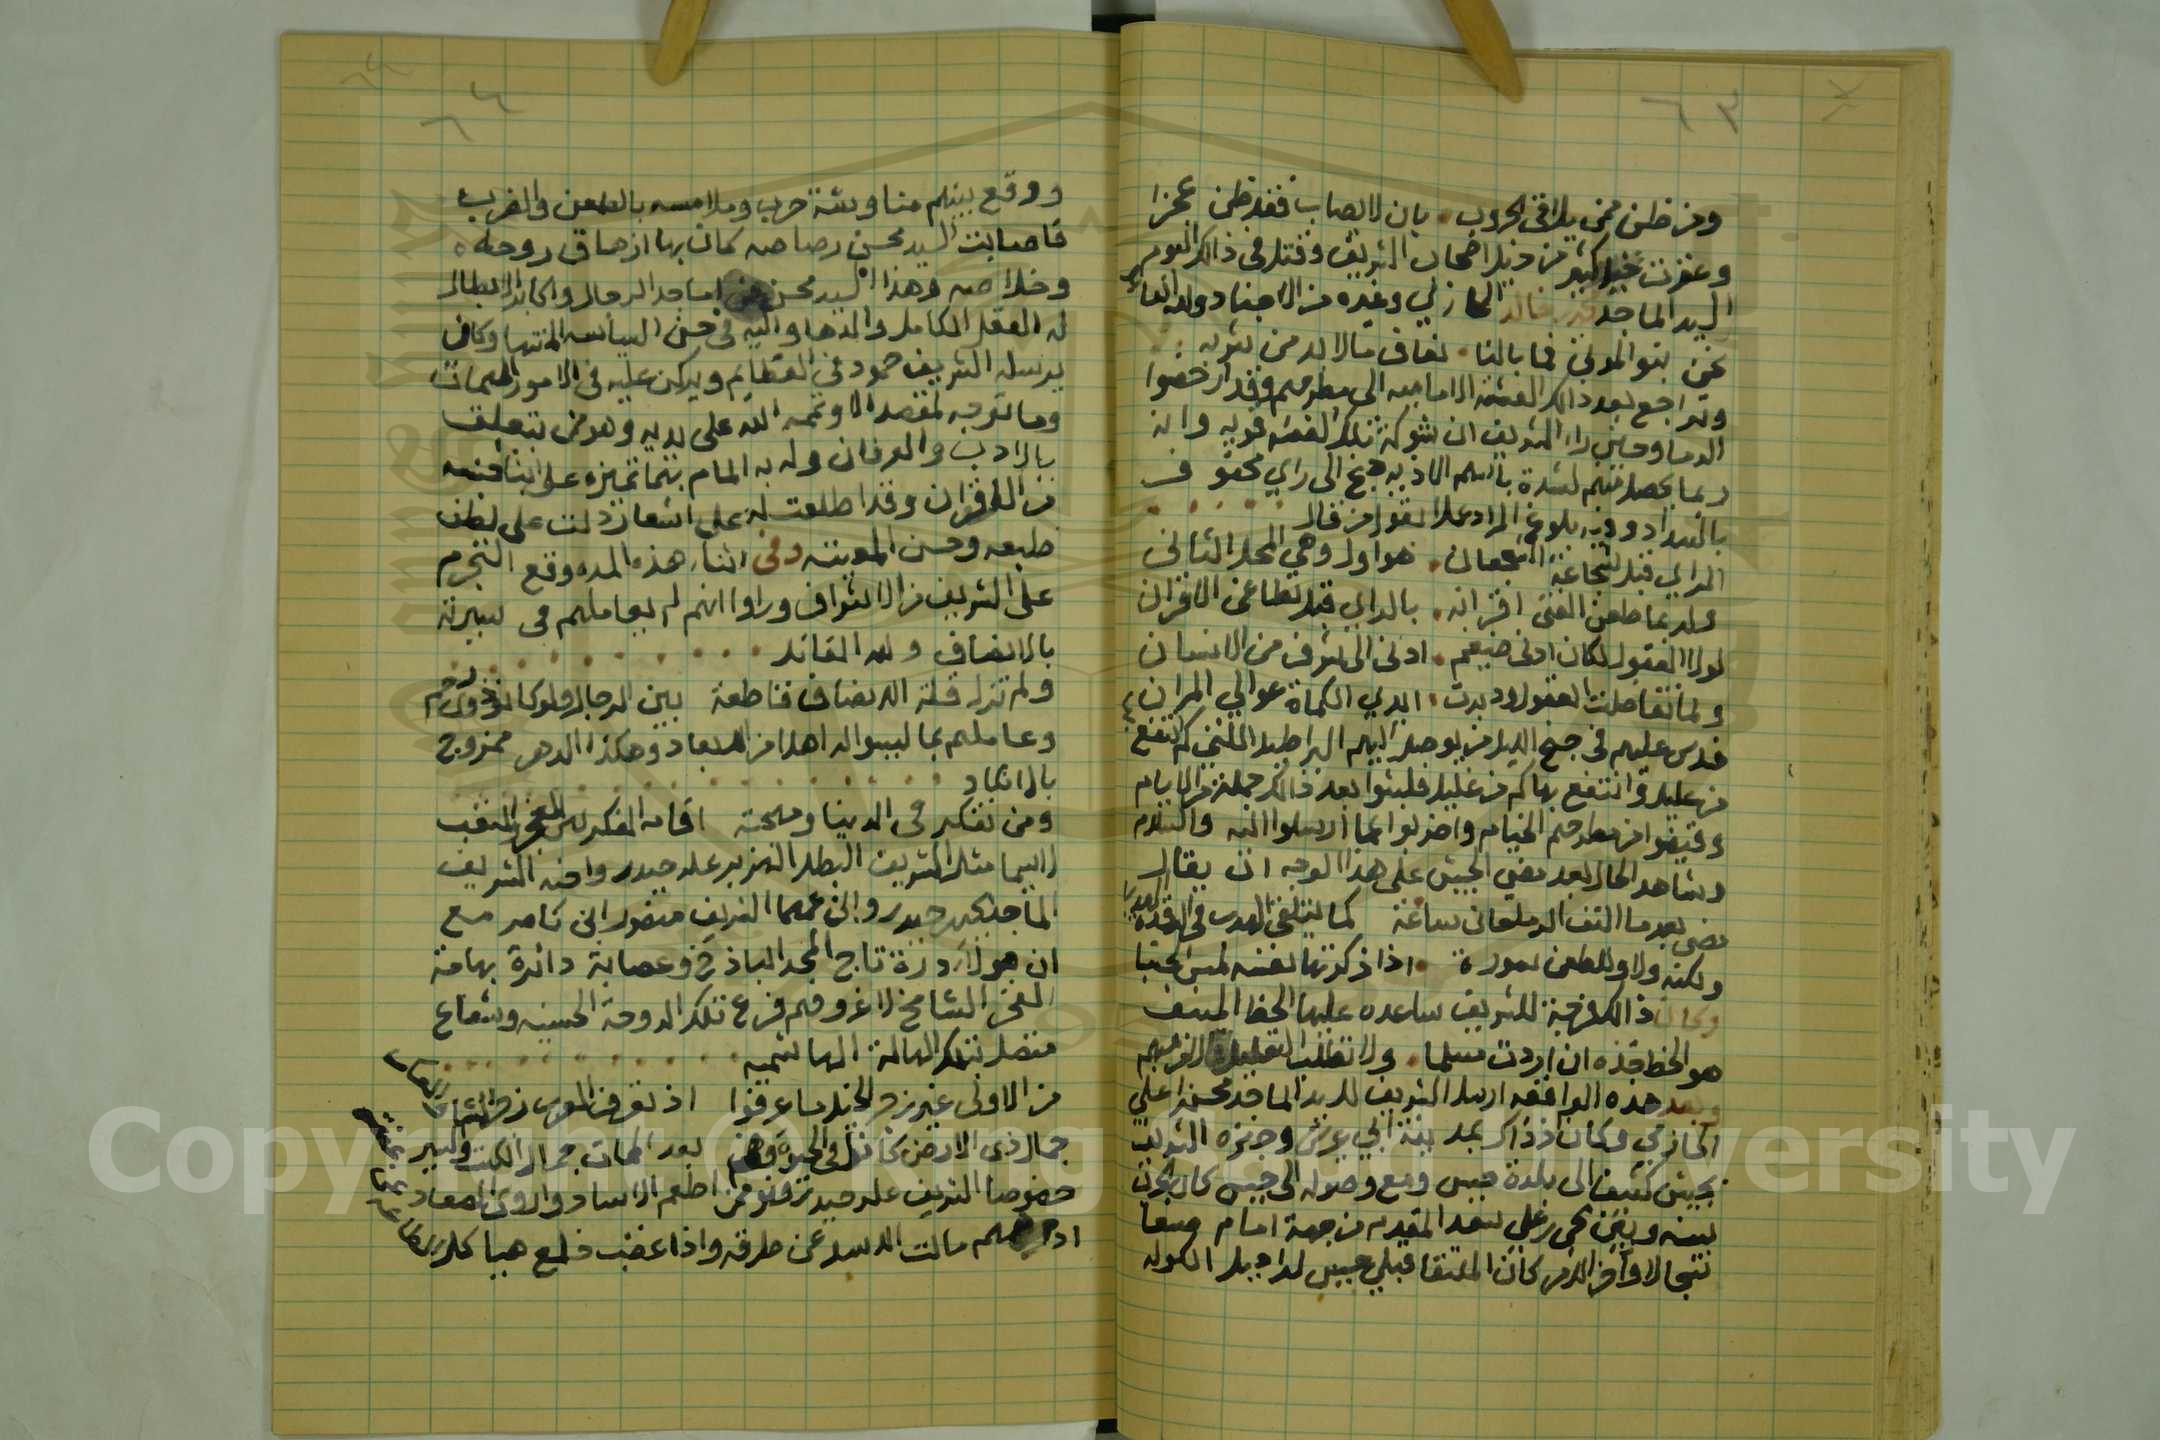 ٦٣
ومن ظن ممن يلاقي الحروب بان لا يصاب فقد ظن عجزا
وعقرت خيل كثير من خيل اصحاب الشريف وقتل في ذالك اليوم
السيد الماجد خالد الحازمي وغيره من الاجناد ولله القائل
نحن بنو الموتى فما بالنا نعاف مالا بد من شربه
وتراجع بعد ذالك الفئة الاماميه الى مطرحهم وقد ارخصوا
الدما وحين راء الشريف ان شوكة تلك الفئه قويه وانه
ربما يحصل منهم لشدة باسهم الاذيه جنح الى راي محفوف
بالسداد وفيه بلوغ المراد عملا بقول من قال
الراي قبل شجاعة الشجعان هو اول وهي المحل الثاني
ولربما طعن الفتى اقرانه بالراي قبل تطاعن الاقران
لولا العقول لكان ادنى ضيغم ادنى الى شرف من الانسان
ولما تفاضلت العقول ودبرت ايدي الكماة عوالي المران
فدس عليهم في جنح الليل من يوصل اليهم البراطيل اللتي كم تنفع
من عليل وانتفع بها كم من غليل فلبثوا بعد ذالك جملة من الايام
وقوضوا من مطرحهم الخيام واضربوا عما ارسلوا اليه والسلام
وشاهد الحال بعد مضي الجيش على هذا الوجه ان يقال
مضى بعد ما التف الرماحان ساعة كما يتلقى الهدب في الرقدة الهدبا
ولكنه ولا وللطعن سورة اذا ذكرتها نفسه لمس الجنبا
وكان ذالك فرجة للشريف ساعده عليها الحظ المنيف
هو الحظ خذه ان اردت مسلما ولا تطلب التعليل
وبعد هذه الواقعه ارسل الشريف للسيد الماجد محسن بن علي
الحازمي وكان اذ ذاك بمدينة ابي عريش وجهزه الشريف
بجيش كثيف الى بلدة حيس ومع وصوله الى حيس كان الحرب
بينه وبين يحي بن علي سعد المقدم من جهة امام صنعا
سجالا واخر الامر كان الملتقا قبلي حيس لدا جبل الكوله
٦٤
ووقع بينهم مناوشة حرب وملامسه بالطعن والضرب
فاصابت السيد محسن رصاصه كمان بها ازهاق روحه
وخلاصه وهذا السيد محسن من اماجد الرجال واكابر الابطال
له العقل الكامل والدها واليه في حسن السياسه المنتها وكان
يرسله الشريف حمود في العظائم ويركن عليه في الامور المهمات
وما توجه لمقصد الا وتممه الله على يديه وهو ممن يتعلق
بالادب والعرفان وله به المام بتما تميزه على ابنا جنسه
من الاقران وقد اطلعت له على اشعار دلت على لطف
طبعه وحسن المويته وفي اثناء هذه المده وقع التجرم
على الشريف من الاشراف وراوا انهم لم يعاملهم في سيرته
بالانصاف ولله القائل
ولم تزل قلة الانصاف قاطعة بين الرجال ولو كانوا ذوي رحم
وعاملهم بما ليسوا له اهلا من الابعاد وهكذا الدهر ممزوج
بالانكاد
ومن تفكر في الدنيا ومهجته اقامه الفكر بين العجز والتعب
لاسيما مثل الشريف البطل الهزبر علي حيدر واخيه الشريف
الماجد يحيى حيدر وابن عمهما الشريف منصور ابن ناصر مع
ان هولاء درة تاج المجد الباذخ وعصابة دائرة بهامة
الفخر الشامخ لا غرو فهم فرع تلك الدوحة الحسنيه وشعاع
متصل بتلك الهالة الهاشميه
من الاولى غير زجر الخيل ما عرفوا اذ تعرف العرب زجر الشاء والعكر
جمال ذي الارض كانوا في الحيوة وهم بعد الممات جمال الكتب والسير
خصوصا الشريف علي حيدر فهو ممن اطعم الاساد واروى الصعاد
مالت الاسد عن طرقه واذا غضب خلع هيبا كل